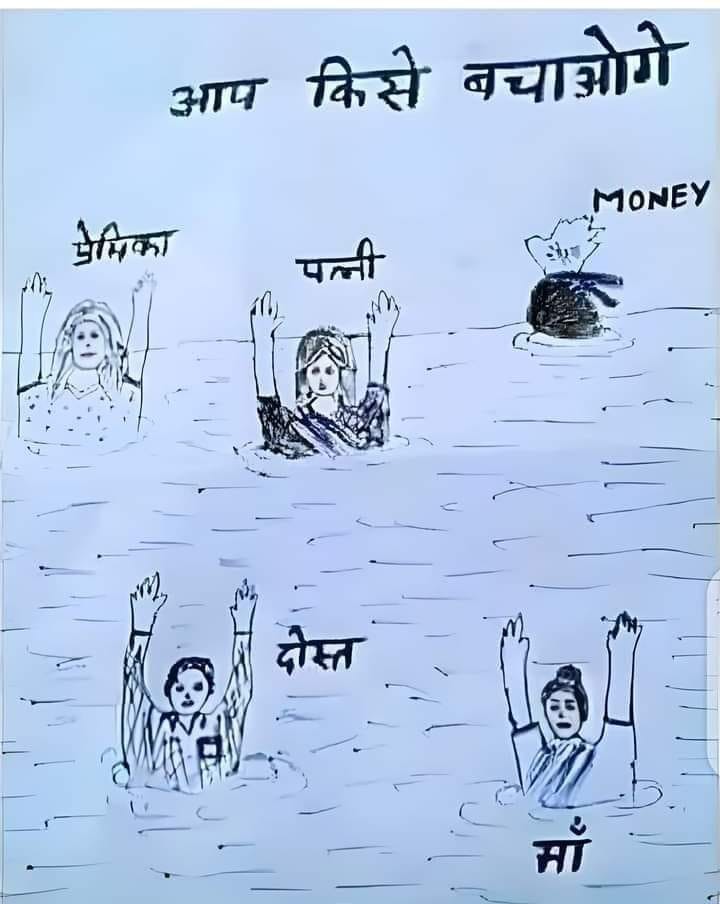 आप किसे बचाओगे
MONEY
प्रेमिका
पत्नी
दोस्त
माँ